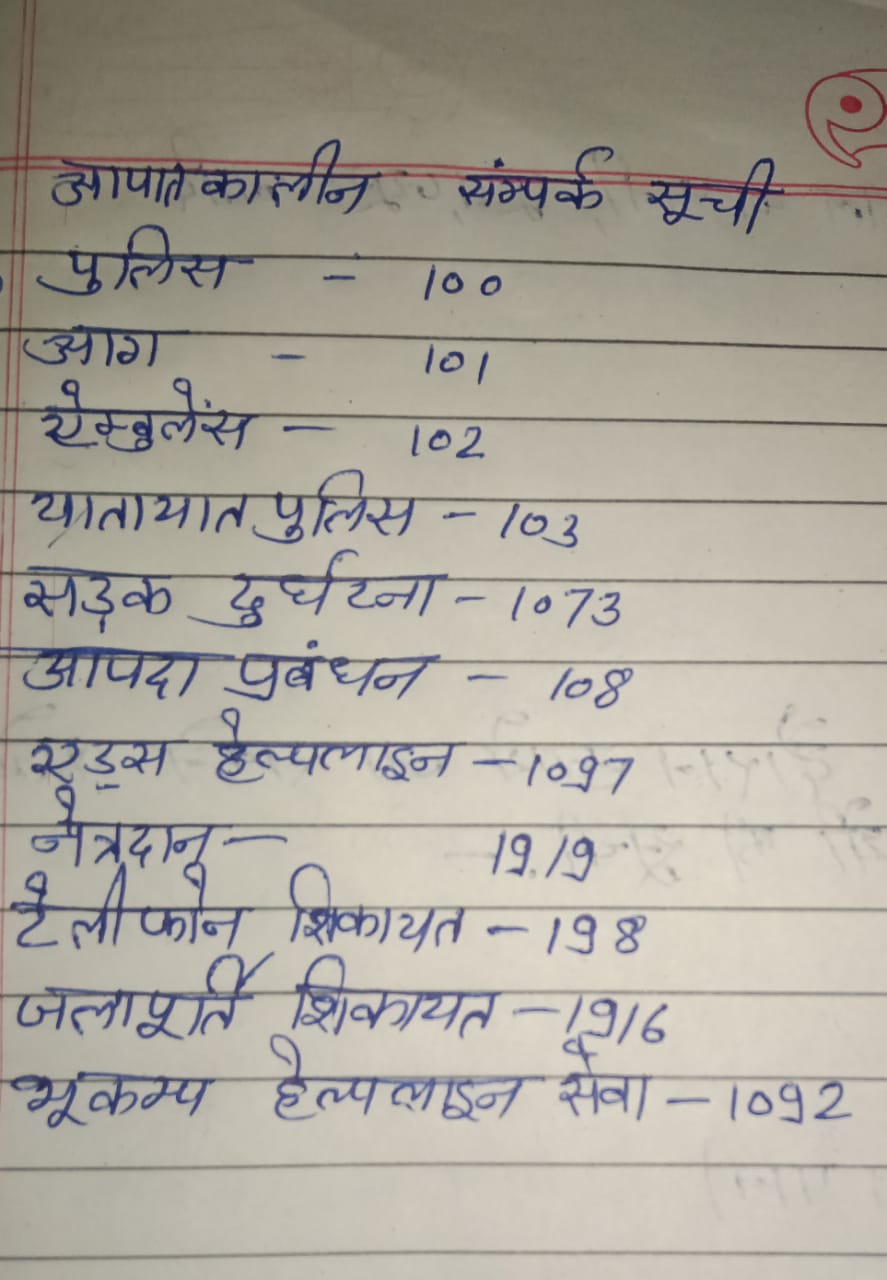 आपातकालीन संम्पर्क सूची
पुलिस - 100
आग - 101
ऐम्बुलेंस - 102
यातायात पुलिस - 103
सड़क दुर्घटना - 1073
आपदा प्रबंधन - 108
एड्स हेल्पलाइन - 1097
नेत्रदान - 1919
टेलीफोन शिकायत - 198
जलापूर्ति शिकायत - 1916
भूकम्प हेल्पलाइन सेवा - 1092